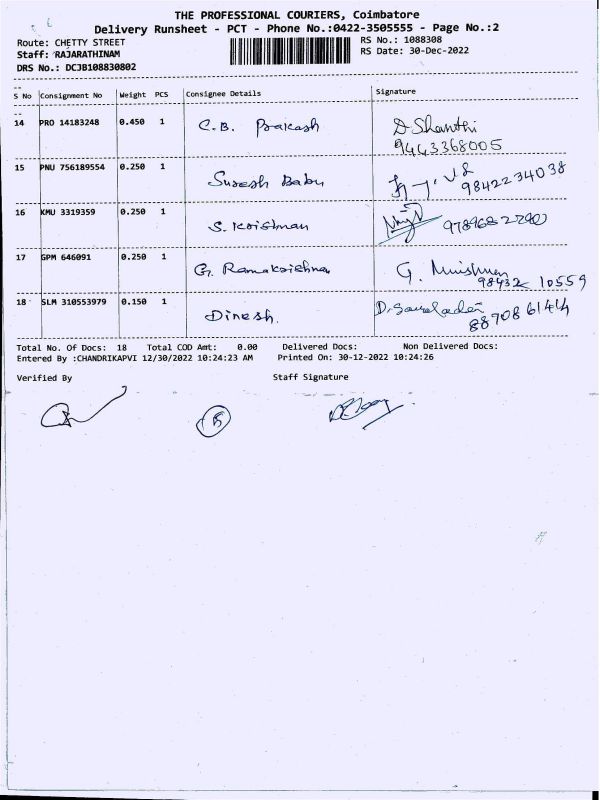 THE PROFESSIONAL COURIERS, Coimbatore
Delivery Runsheet - PCT - Phone No.:0422-3505555 - Page No.:2
Route: CHETTY STREET RS No.: 1088308
Staff: RAJARATHINAM RS Date: 30-Dec-2022
DRS No.: DCJB108830802
S No Consignment No Weight PCS Consignee Details Signature
14 PRO 14183248 0.450 1 C.B. Prakash D Shanthi
9443368005
15 PNU 756189554 0.250 1 Suresh Babu 9842234038
16 KMU 3319359 0.250 1 S. Krishnan
17 GPM 646091 0.250 1 G. Ramakrishnan G.
98432 10559
18 SLM 310553979 0.150 1 Dinesh.
Total No. Of Docs: 18 Total COD Amt: 0.00 Delivered Docs: Non Delivered Docs:
Entered By :CHANDRIKAPVI 12/30/2022 10:24:23 AM Printed On: 30-12-2022 10:24:26
Verified By Staff Signature